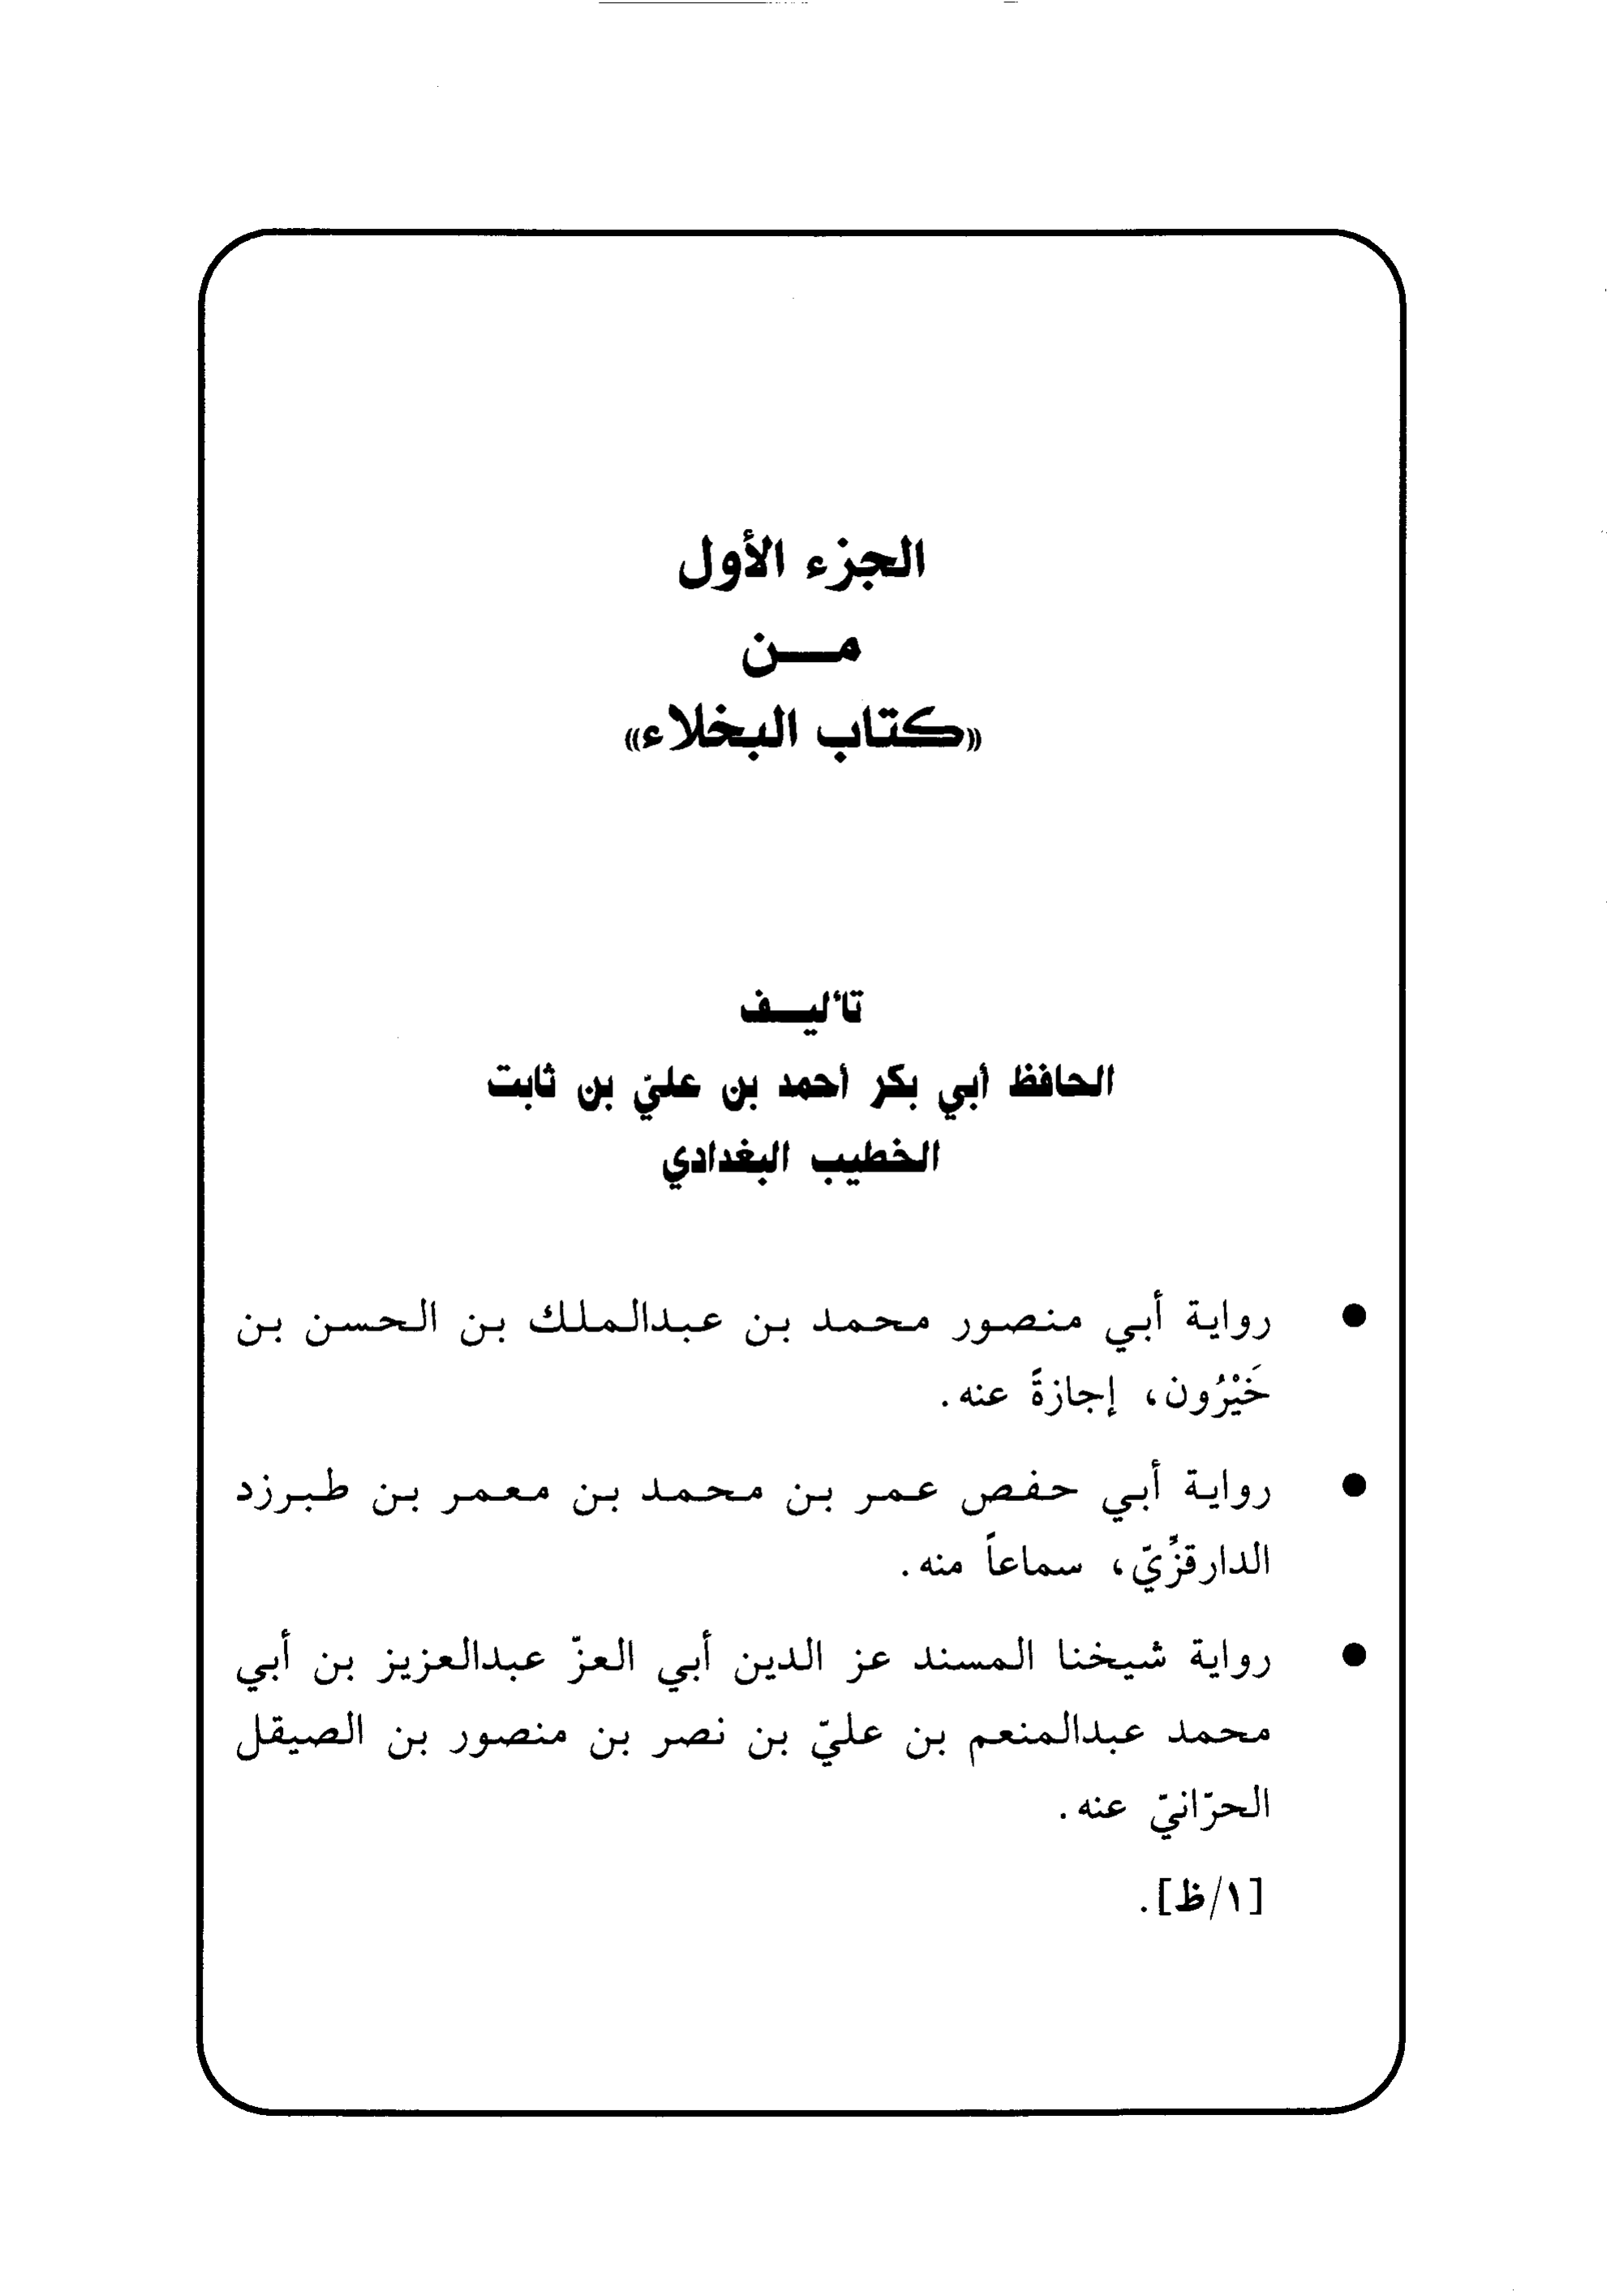 الجزء الأول
مــن
«كتاب البخلاء»
تأليــف
الحافظ أبي بكر أحمد بن عليّ بن ثابت
الخطيب البغدادي
● رواية أبي منصور محمد بن عبدالملك بن الحسن بن
خَيْرُون، إجازةً عنه.
● رواية أبي حفص عمر بن محمد بن معمر بن طبرزد
الدارقزِّيّ، سماعاً منه.
● رواية شيخنا المسند عز الدين أبي العزّ عبدالعزيز بن أبي
محمد عبدالمنعم بن عليّ بن نصر بن منصور بن الصيقل
الحرّانيّ عنه.
[١/ظ].